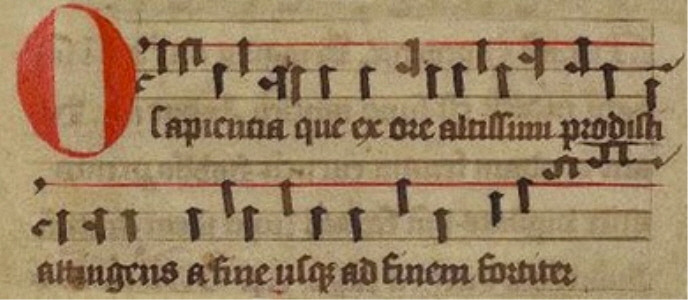 O sapientia que ex ore altissimi prodisti
attingens a fine usq; ad finem fortiter